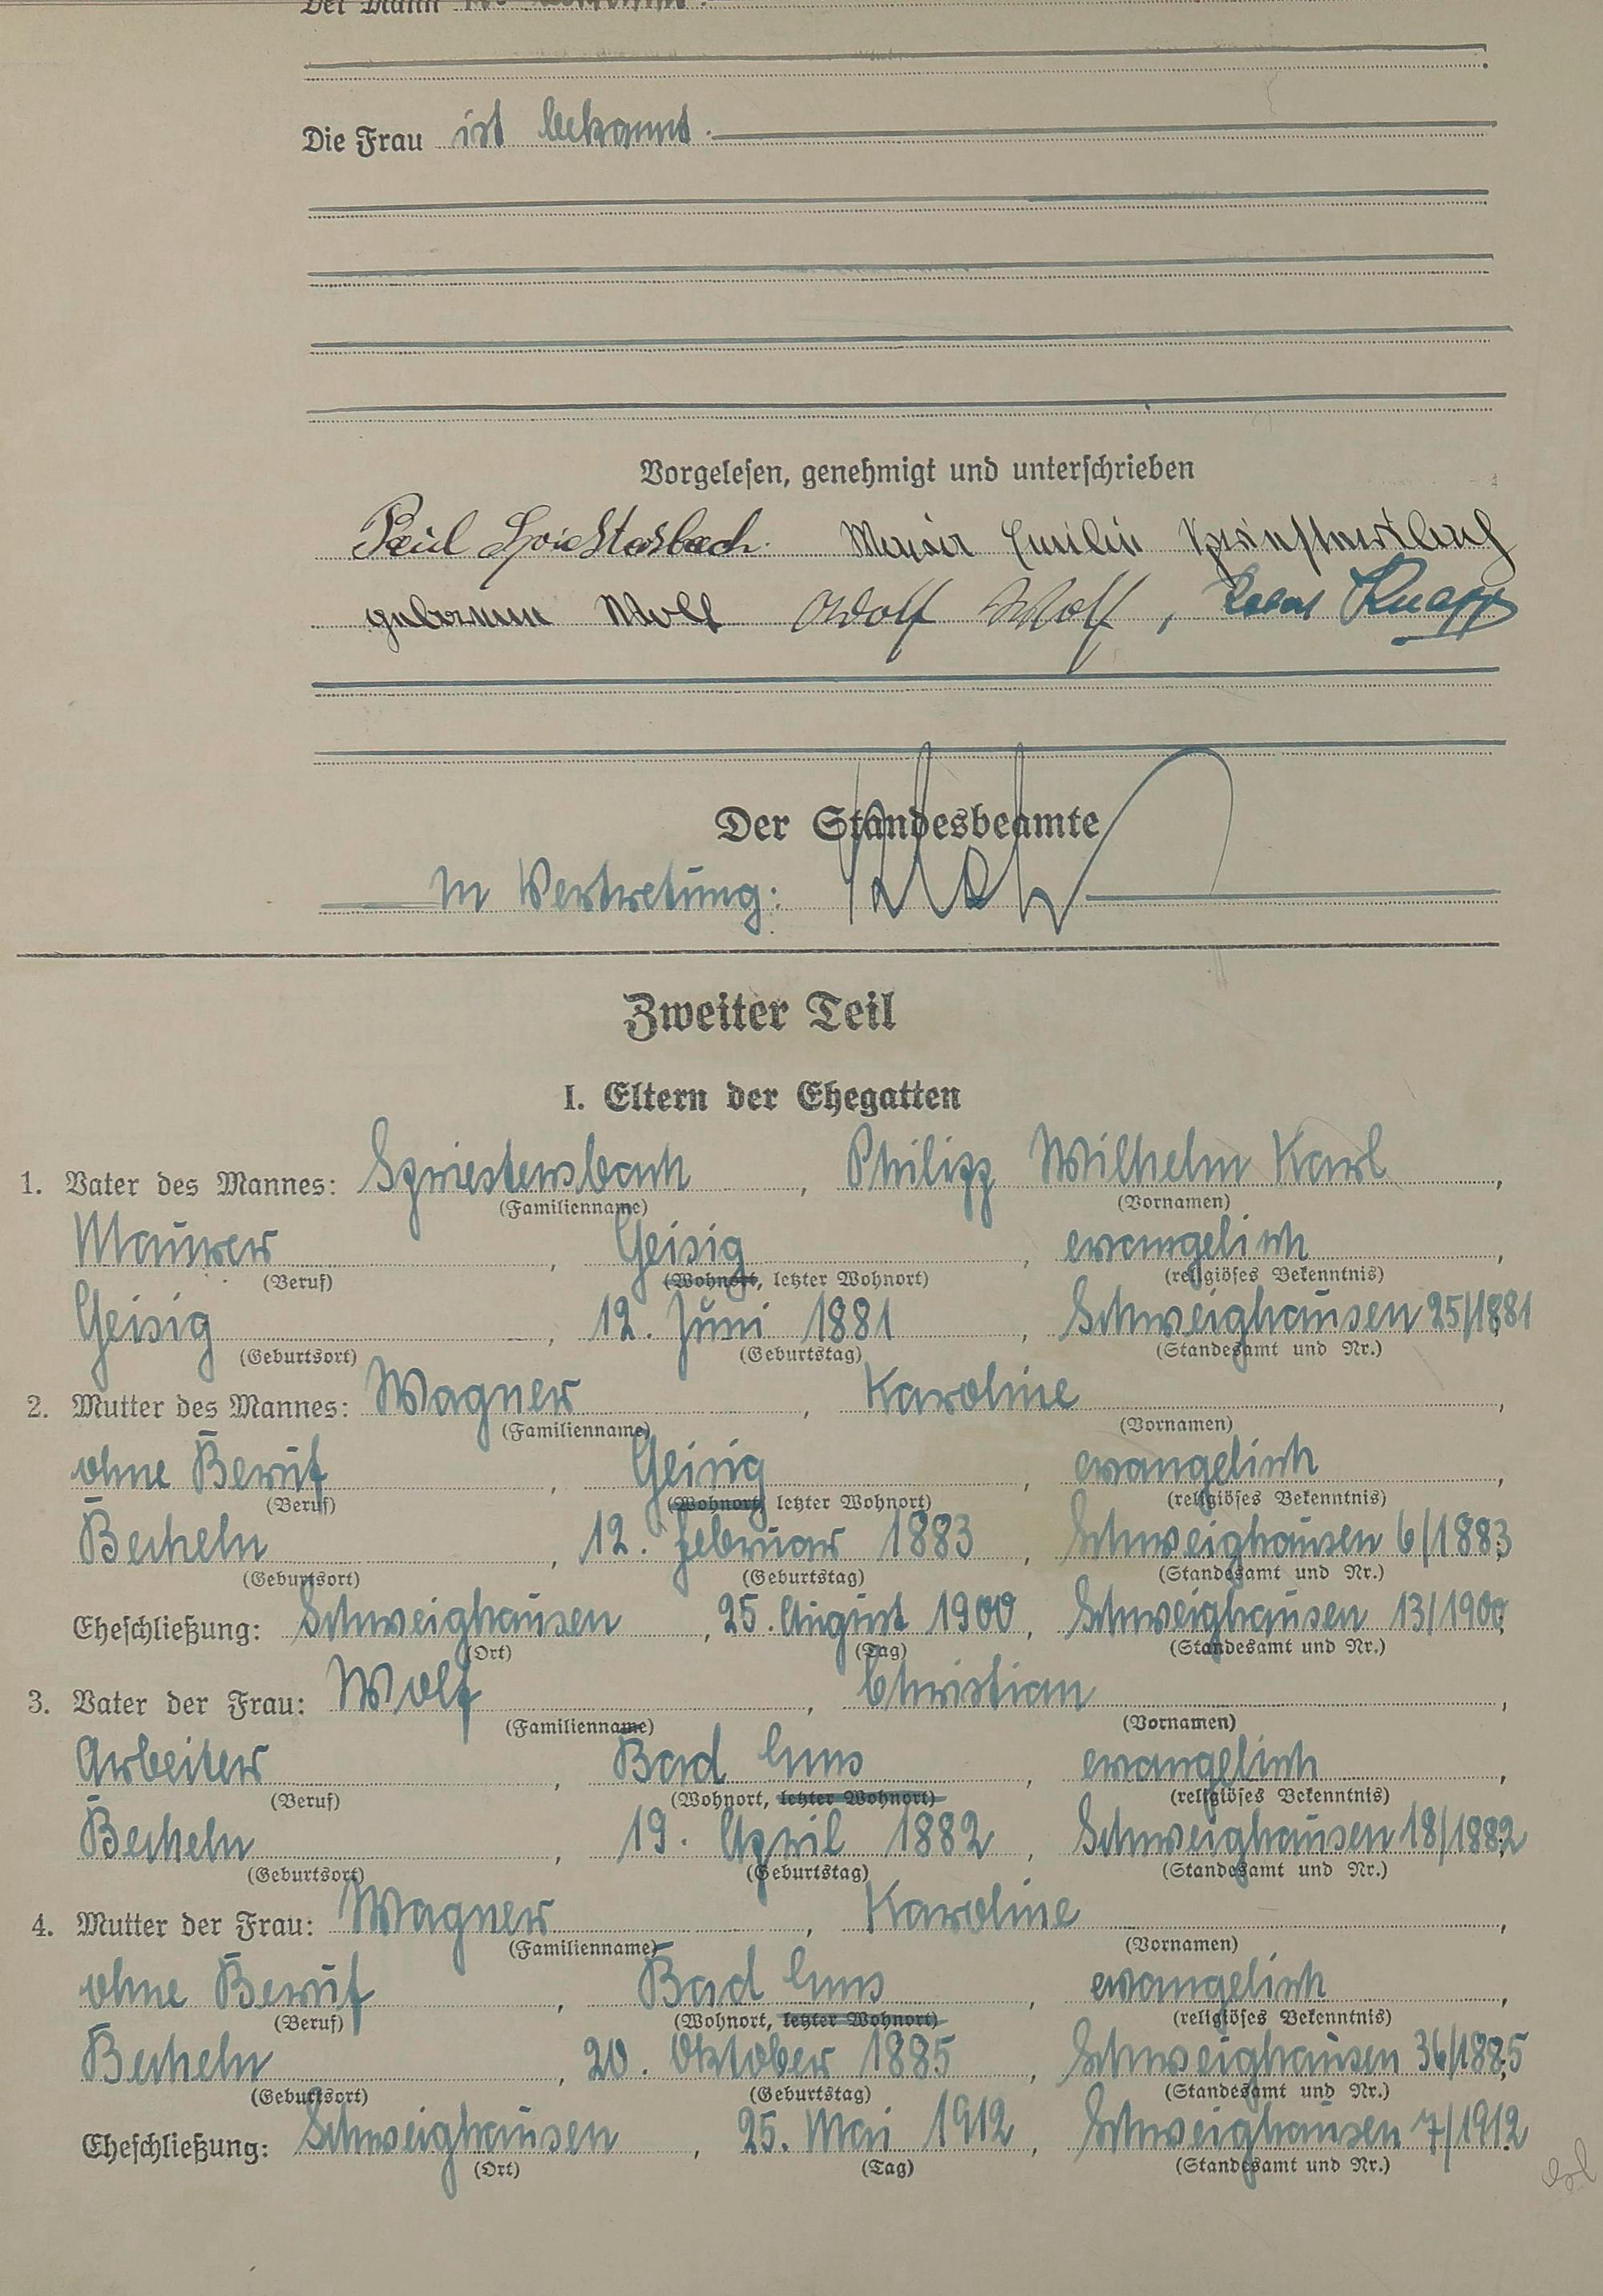 Der Mann ist bekannt.
Die Frau ist bekannt.
Vorgelesen, genehmigt und unterschrieben
Paul Spriestersbach Emilie Spriestersbach
geborene Wolf Adolf Wolf, Knapp
Der Standesbeamte
In Vertretung:
Zweiter Teil
I. Eltern der Ehegatten
1. Vater des Mannes: Spriestersbach, Philipp Wilhelm Karl,
(Familienname) (Vornamen)
Maurer, Geisig, evangelisch,
(Beruf) (Wohnort, letzter Wohnort) (religiöses Bekenntnis)
Geisig, 12. Juni 1881, Schweighausen 25/1881
(Geburtsort) (Geburtstag) (Standesamt und Nr.)
2. Mutter des Mannes: Wagner, Karoline,
(Familienname) (Vornamen)
ohne Beruf, Geisig, evangelisch,
(Beruf) (Wohnort, letzter Wohnort) (religiöses Bekenntnis)
Becheln, 12. Februar 1883, Schweighausen 6/1883;
(Geburtsort) (Geburtstag) (Standesamt und Nr.)
Eheschließung: Schweighausen, 25. August 1900, Schweighausen 13/1900;
(Ort) (Tag) (Standesamt und Nr.)
3. Vater der Frau: Wolf, Christian,
(Familienname) (Vornamen)
Arbeiter, Bad Ems, evangelisch,
(Beruf) (Wohnort, letzter Wohnort) (religiöses Bekenntnis)
Becheln, 19. April 1882, Schweighausen 18/1882;
(Geburtsort) (Geburtstag) (Standesamt und Nr.)
4. Mutter der Frau: Wagner, Karoline,
(Familienname) (Vornamen)
ohne Beruf, Bad Ems, evangelisch,
(Beruf) (Wohnort, letzter Wohnort) (religiöses Bekenntnis)
Becheln, 20. Oktober 1885, Schweighausen 36/1885;
(Geburtsort) (Geburtstag) (Standesamt und Nr.)
Eheschließung: Schweighausen, 25. Mai 1912, Schweighausen 7/1912.
(Ort) (Tag) (Standesamt und Nr.)